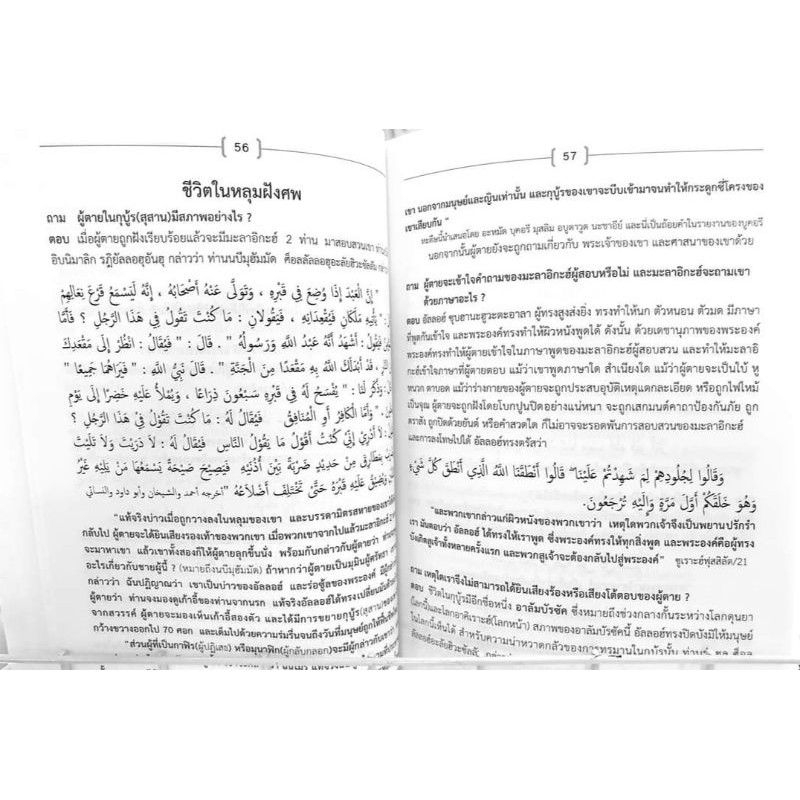 56
ชีวิตในหลุมฝังศพ
ถาม ผู้ตายในกุบู้ร(สุสาน)มีสภาพอย่างไร ?
ตอบ เมื่อผู้ตายถูกฝังเรียบร้อยแล้วจะมีมะลาอิกะฮ์ 2 ท่าน มาสอบสวนเขา
อิบนิมาลิก รฎิยัลลอฮุอันฮุ กล่าวว่า ท่านนบีมุฮัมมัด ศ็อลลัลลอฮุอะลัยฮิวะซัลลัม
" إِنَّ الْعَبْدَ إِذَا وُضِعَ فِي قَبْرِهِ ، وَتَوَلَّى عَنْهُ أَصْحَابُهُ ، إِنَّهُ لَيَسْمَعُ قَرْعَ نِعَالِهِمْ
يَأْتِيهِ مَلَكَانِ فَيُقْعِدَانِهِ ، فَيَقُولَانِ : مَا كُنْتَ تَقُولُ فِي هَذَا الرَّجُلِ ؟ فَأَمَّا
فَيَقُولُ : أَشْهَدُ أَنَّهُ عَبْدُ اللَّهِ وَرَسُولُهُ " . قَالَ : " فَيُقَالُ : انْظُرْ إِلَى مَقْعَدِكَ
، قَدْ أَبْدَلَكَ اللَّهُ بِهِ مَقْعَدًا مِنَ الْجَنَّةِ " . قَالَ نَبِيُّ اللَّهِ : " فَيَرَاهُمَا جَمِيعًا "
وَذُكِرَ لَنَا : " يُفْسَحُ لَهُ فِي قَبْرِهِ سَبْعُونَ ذِرَاعًا ، وَيُمْلَأُ عَلَيْهِ خَضِرًا إِلَى يَوْمِ
" وَأَمَّا الْكَافِرُ أَوِ الْمُنَافِقُ فَيُقَالُ لَهُ : مَا كُنْتَ تَقُولُ فِي هَذَا الرَّجُلِ ؟
لَا أَدْرِي إِنِّي كُنْتُ أَقُولُ مَا يَقُولُ النَّاسُ فَيُقَالُ لَهُ : لَا دَرَيْتَ وَلَا تَلَيْتَ
مِنْ حَدِيدٍ ضَرْبَةً بَيْنَ أُذُنَيْهِ فَيَصِيحُ صَيْحَةً يَسْمَعُهَا مَنْ يَلِيهِ غَيْرُ
عَلَيْهِ قَبْرُهُ حَتَّى تَخْتَلِفَ أَضْلَاعُهُ " أخرجه أحمد والشيخان وأبو داود والنسائي
"แท้จริงบ่าวเมื่อถูกวางลงในหลุมของเขา และบรรดามิตรสหายของเขาได้
กลับไป ผู้ตายจะได้ยินเสียงรองเท้าของพวกเขา เมื่อพวกเขาจากไปแล้วมะลาอิกะฮ์ 2
จะมาหาเขา แล้วเขาทั้งสองก็ให้ผู้ตายลุกขึ้นนั่ง พร้อมกับกล่าวกับผู้ตายว่า
อะไรเกี่ยวกับชายผู้นี้ ? (หมายถึงนบีมุฮัมมัด) ถ้าหากว่าผู้ตายเป็นมุมินผู้ศรัทธา
กล่าวว่า ฉันปฏิญาณว่า เขาเป็นบ่าวของอัลลอฮ์ และร่อซู้ลของพระองค์
ผู้ตายว่า ท่านจงมองดูเก้าอี้ของท่านจากนรก แท้จริงอัลลอฮ์ได้ทรงเปลี่ยน
จากสวรรค์ ผู้ตายจะมองเห็นเก้าอี้สองตัว และได้มีการขยายกุบู้ร(สุสาน)
กว้างขวางออกไป 70 ศอก และเติมไปด้วยความร่มรื่นจนถึงวันที่มนุษย์ถูก
"ส่วนผู้ที่เป็นกาฟิร(ผู้ปฏิเสธ) หรือมุนาฟิก(ผู้กลับกลอก)จะมีผู้กล่าวกับเขา
57
เขา นอกจากมนุษย์และญินเท่านั้น และกุบู้รของเขาจะบีบเข้ามาจนทำให้กระดูกซี่โครงของ
เขาเสียบกัน "
หะดีษนี้นำเสนอโดย อะหมัด บุคอรี มุสลิม อบูดาวูด นะซาอีย์ และนี่เป็นถ้อยคำในรายงานของบุคอรี
นอกจากนั้นผู้ตายยังจะถูกถามเกี่ยวกับ พระเจ้าของเขา และศาสนาของเขาด้วย
ถาม ผู้ตายจะเข้าใจคำถามของมะลาอิกะฮ์ผู้สอบหรือไม่ และมะลาอิกะฮ์จะถามเขา
ด้วยภาษาอะไร ?
ตอบ อัลลอฮ์ ซุบฮานะฮูวะตะอาลา ผู้ทรงสูงส่งยิ่ง ทรงทำให้นก ตัวหนอน ตัวมด มีภาษา
ที่พูดกันเข้าใจ และพระองค์ทรงทำให้ผิวหนังพูดได้ ดังนั้น ด้วยเดชานุภาพของพระองค์
พระองค์ทรงทำให้ผู้ตายเข้าใจในภาษาพูดของมะลาอิกะฮ์ผู้สอบสวน และทำให้มะลาอิ
กะฮ์เข้าใจภาษาที่ผู้ตายตอบ แม้ว่าเขาพูดภาษาใด สำเนียงใด แม้ว่าผู้ตายจะเป็นใบ้ หู
หนวก ตาบอด แม้ว่าร่างกายของผู้ตายจะถูกประสบอุบัติเหตุแตกละเอียด หรือถูกไฟไหม้
เป็นจุณ ผู้ตายจะถูกฝังโดยโบกปูนปิดอย่างแน่นหนา จะถูกเสกมนต์คาถาป้องกันภัย ถูก
ตราสัง ถูกปิดด้วยยันต์ หรือคำสวดใด ก็ไม่อาจจะรอดพ้นการสอบสวนของมะลาอิกะฮ์
และการลงโทษไปได้ อัลลอฮ์ทรงตรัสว่า
وَقَالُوا لِجُلُودِهِمْ لِمَ شَهِدتُّمْ عَلَيْنَا ۖ قَالُوا أَنطَقَنَا اللَّهُ الَّذِي أَنطَقَ كُلَّ شَيْءٍ
وَهُوَ خَلَقَكُمْ أَوَّلَ مَرَّةٍ وَإِلَيْهِ تُرْجَعُونَ.
"และพวกเขากล่าวแก่ผิวหนังของพวกเขาว่า เหตุใดพวกเจ้าจึงเป็นพยานปรักรำ
เรา มันตอบว่า อัลลอฮ์ ได้ทรงให้เราพูด ซึ่งพระองค์ทรงให้ทุกสิ่งพูด และพระองค์คือผู้ทรง
บังเกิดสูเจ้าทั้งหลายครั้งแรก และพวกสูเจ้าจะต้องกลับไปสู่พระองค์" ซูเราะฮ์ฟุสสิลัต/21
ถาม เหตุใดเราจึงไม่สามารถได้ยินเสียงร้องหรือเสียงโต้ตอบของผู้ตาย ?
ตอบ ชีวิตในกุบู้รมีอีกชื่อหนึ่ง อาลัมบัรซัค ซึ่งหมายถึงช่วงกลางกั้นระหว่างโลกดุนยา
(โลกนี้)และโลกอาคิเราะฮ์(โลกหน้า) สภาพของอาลัมบัรซัคนี้ อัลลอฮ์ทรงปิดบังมิให้มนุษย์
ในโลกนี้เห็นได้ สำหรับความน่าหวาดกลัวของการทรมานในกุบู้รนั้น